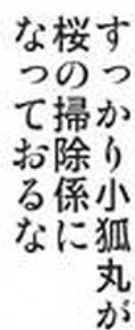 すっかり小狐丸が
桜の掃除係に
なっておるな